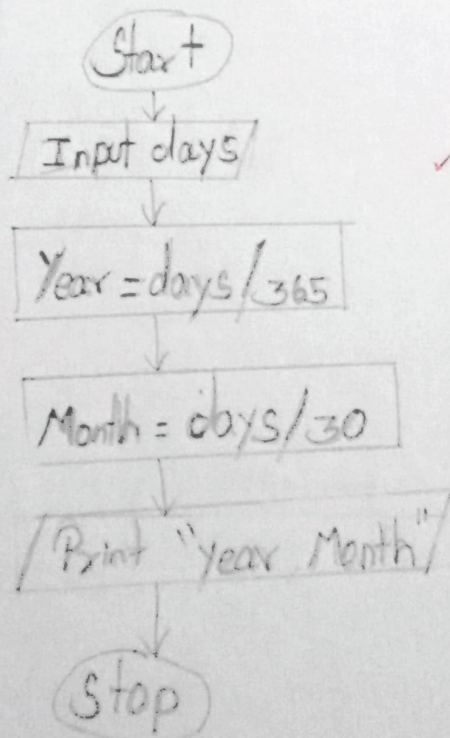 Start
Input days
Year = days/365
Month = days/30
Print "year Month"
Stop